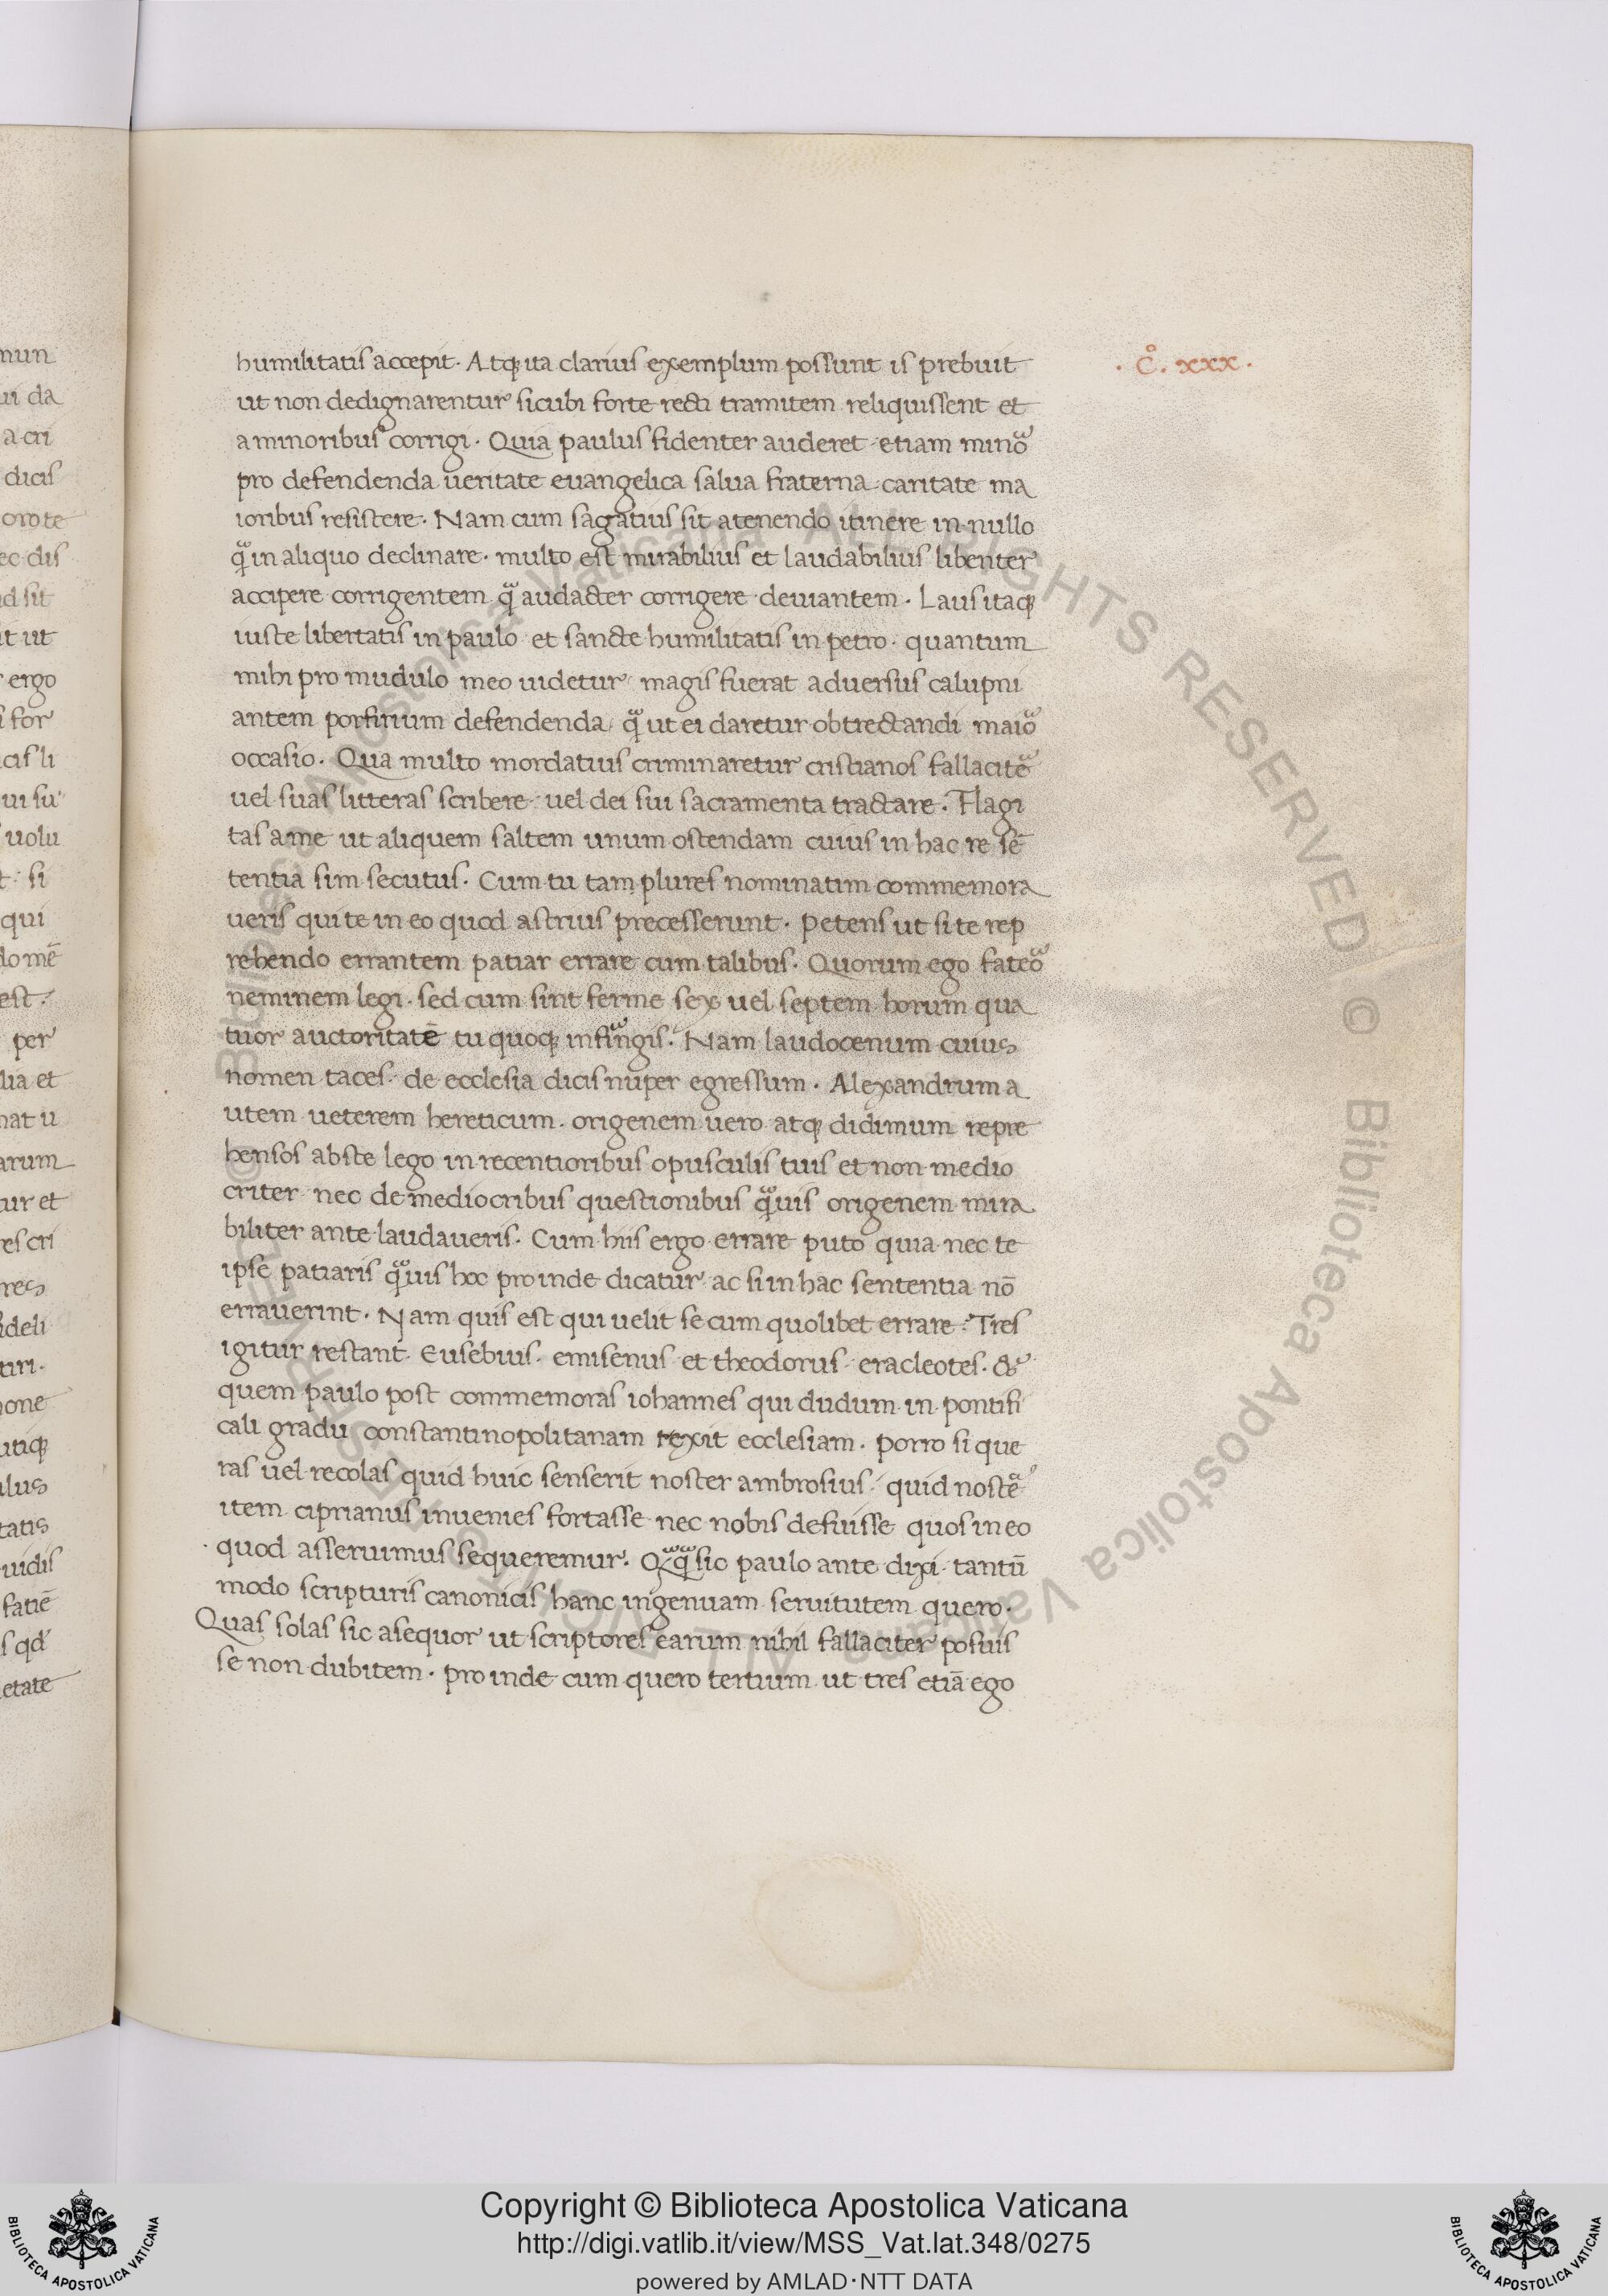 humilitatis accepit. Atq; ita clarius exemplum possunt is prebuit
. c̊. xxx .
ut non dedignarentur sicubi forte recti tramitem reliquissent et
a minoribus corrigi. Quia paulus fidenter auderet etiam mino
pro defendenda ueritate euangelica salua fraterna caritate ma
ioribus resistere. Nam cum sagatius sit a tenendo itinere in nullo
q̃ in aliquo declinare. multo est mirabilius et laudabilius libenter
accipere corrigentem q̃ audacter corrigere deuiantem. Laus itaq;
iuste libertatis in paulo et sancte humilitatis in petro. quantum
mihi pro mudulo meo uidetur magis fuerat aduersus calupni
antem porfirium defendenda q̃ ut ei daretur obtrectandi maio
occasio. Qua multo mordatius criminaretur cristianos fallacitẽ
uel suas litteras scribere uel dei sui sacramenta tractare. Flagi
tas a me ut aliquem saltem unum ostendam cuius in hac re sē
tentiā sim secutus. Cum tu tam plures nominatim commemora
ueris qui te in eo quod astrius precesserunt. Petens ut si te rep
rehendo errantem patiar errare cum talibus. Quorum ego fateo
neminem legi. sed cum sint ferme sex uel septem horum qua
tuor auctoritatē tu quoq; infingis. Nam laudocenum cuius
nomen taces. de ecclesia dicis nuper egressum. Alexandrum a
utem ueterem hereticum. origenem uero atq; didimum repre
hensos abs te lego in recentioribus opusculis tuis et non medio
criter nec de mediocribus questionibus q̃uis origenem mira
biliter ante laudaueris. Cum hiis ergo errare puto quia nec te
ipse patiaris q̃uis hoc proinde dicatur ac si in hac sententia nō
errauerint. Nam quis est qui uelit se cum quolibet errare. Tres
igitur restant. Eusebius. emisenus et theodorus eracleotes. &
quem paulo post commemoras iohannes qui dudum in pontifi
cali gradu constantinopolitanam rexit ecclesiam. porro si que
ras uel recolas quid huic senserit noster ambrosius. quid nostẽ
item ciprianus inuenies fortasse nec nobis defuisse quos in eo
quod asseruimus sequeremur. Q̃q̃ sic paulo ante dixi. tantū
modo scripturis canonicis hanc ingenuam seruitutem quero.
Quas solas sic asequor ut scriptores earum nihil fallaciter posuis
se non dubitem. proinde cum quero tertium ut tres etiā ego
mun
ui da
a cri
dicis
oro te
ec dis
id sit
it ut
ergo
i for
cis li
ui su
uolu
si
qui
do mē
est.
per
lia et
nat u
arum
ur et
es cri
res
ideli
turi.
one
utiq;
lus
tatis
uidis
fatiē
s qd
etate
© Biblioteca Apostolica Vaticana ALL RIGHTS RESERVED © Biblioteca Apostolica Vaticana ALL RIGHTS RESERVED
Copyright © Biblioteca Apostolica Vaticana
http://digi.vatlib.it/view/MSS_Vat.lat.348/0275
powered by AMLAD·NTT DATA
BIBLIOTECA APOSTOLICA VATICANA
BIBLIOTECA APOSTOLICA VATICANA